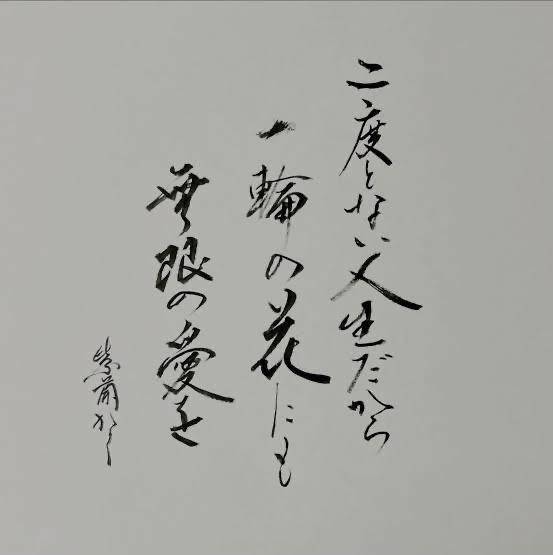 二度とない人生だから
一輪の花にも
無限の愛を
かく